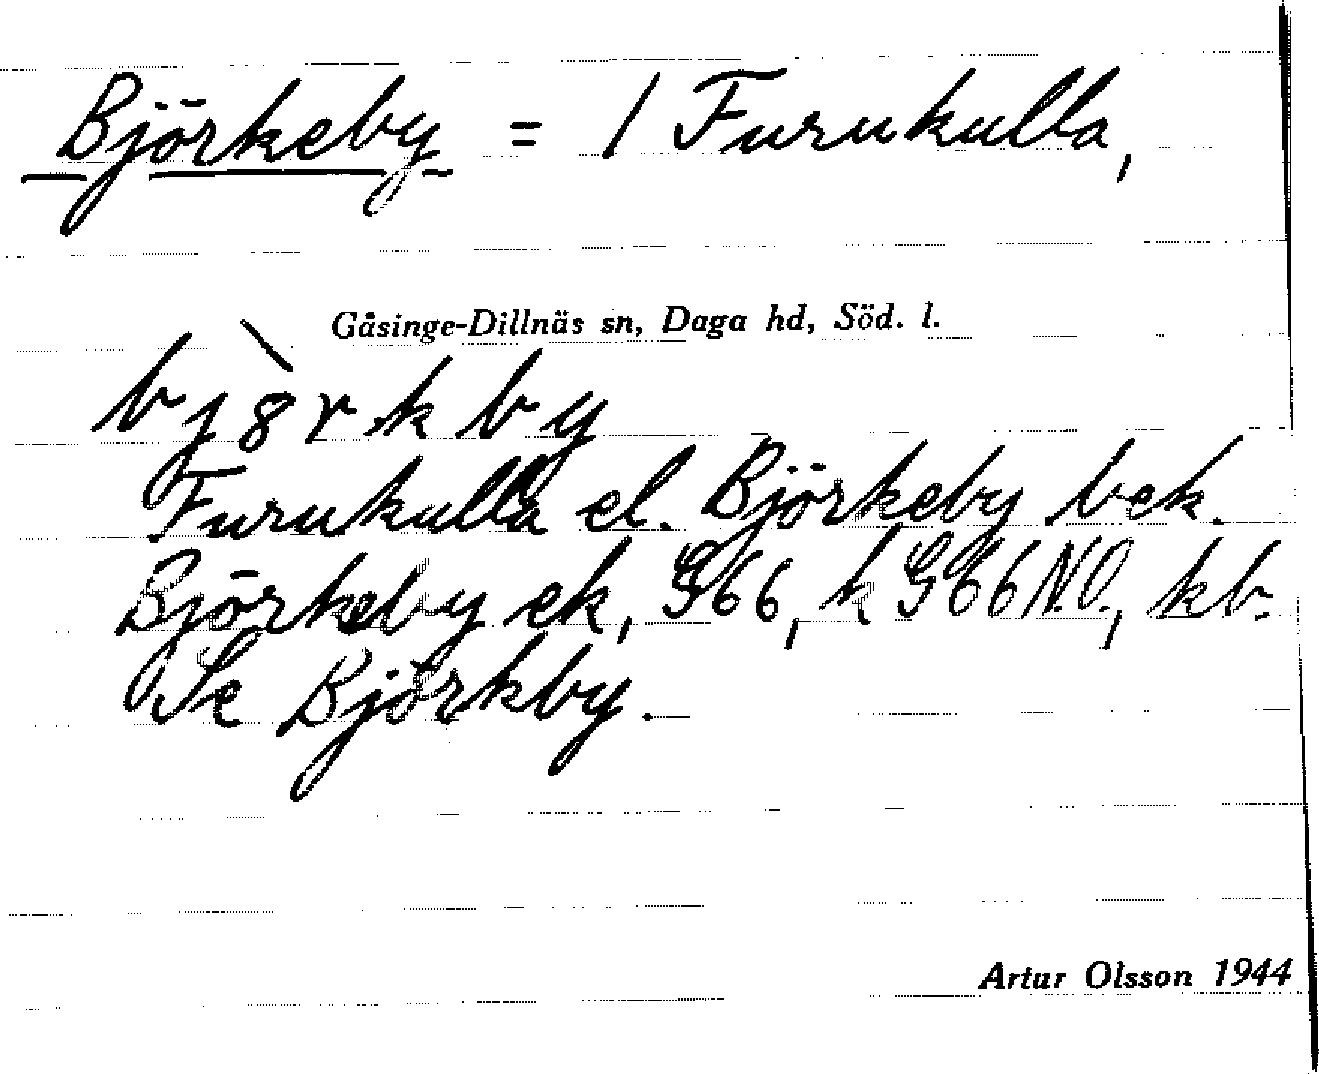 Björkeby = / Furukulla,
Gåsinge-Dillnäs sn, Daga hd, Söd. l.
bj8̀rkby
Furukulla el. Björkeby bek.
Björkeby ek, G66, k G66 N.O., kb.
Se Björkby.
Artur Olsson 1944